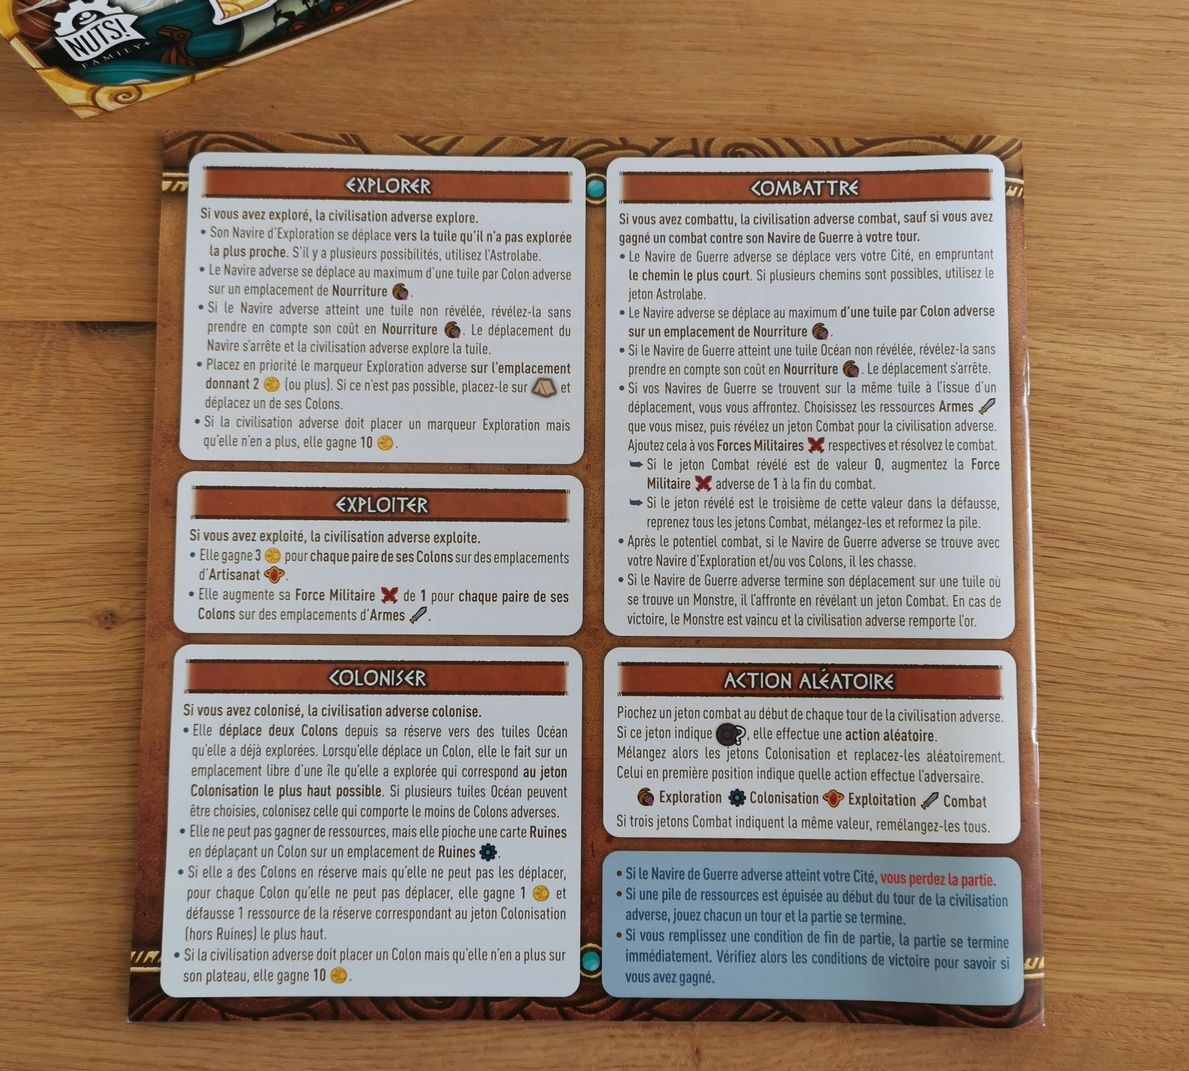 NUTS!
FAMILY+
EXPLORER
Si vous avez exploré, la civilisation adverse explore.
• Son Navire d'Exploration se déplace vers la tuile qu'il n'a pas explorée
la plus proche. S'il y a plusieurs possibilités, utilisez l'Astrolabe.
• Le Navire adverse se déplace au maximum d'une tuile par Colon adverse
sur un emplacement de Nourriture .
• Si le Navire adverse atteint une tuile non révélée, révélez-la sans
prendre en compte son coût en Nourriture . Le déplacement du
Navire s'arrête et la civilisation adverse explore la tuile.
• Placez en priorité le marqueur Exploration adverse sur l'emplacement
donnant 2 (ou plus). Si ce n'est pas possible, placez-le sur et
déplacez un de ses Colons.
• Si la civilisation adverse doit placer un marqueur Exploration mais
qu'elle n'en a plus, elle gagne 10 .
EXPLOITER
Si vous avez exploité, la civilisation adverse exploite.
• Elle gagne 3 pour chaque paire de ses Colons sur des emplacements
d'Artisanat .
• Elle augmente sa Force Militaire de 1 pour chaque paire de ses
Colons sur des emplacements d'Armes .
COLONISER
Si vous avez colonisé, la civilisation adverse colonise.
• Elle déplace deux Colons depuis sa réserve vers des tuiles Océan
qu'elle a déjà explorées. Lorsqu'elle déplace un Colon, elle le fait sur un
emplacement libre d'une île qu'elle a explorée qui correspond au jeton
Colonisation le plus haut possible. Si plusieurs tuiles Océan peuvent
être choisies, colonisez celle qui comporte le moins de Colons adverses.
• Elle ne peut pas gagner de ressources, mais elle pioche une carte Ruines
en déplaçant un Colon sur un emplacement de Ruines .
• Si elle a des Colons en réserve mais qu'elle ne peut pas les déplacer,
pour chaque Colon qu'elle ne peut pas déplacer, elle gagne 1 et
défausse 1 ressource de la réserve correspondant au jeton Colonisation
(hors Ruines) le plus haut.
• Si la civilisation adverse doit placer un Colon mais qu'elle n'en a plus sur
son plateau, elle gagne 10 .
COMBATTRE
Si vous avez combattu, la civilisation adverse combat, sauf si vous avez
gagné un combat contre son Navire de Guerre à votre tour.
• Le Navire de Guerre adverse se déplace vers votre Cité, en empruntant
le chemin le plus court. Si plusieurs chemins sont possibles, utilisez le
jeton Astrolabe.
• Le Navire adverse se déplace au maximum d'une tuile par Colon adverse
sur un emplacement de Nourriture .
• Si le Navire de Guerre atteint une tuile Océan non révélée, révélez-la sans
prendre en compte son coût en Nourriture . Le déplacement s'arrête.
• Si vos Navires de Guerre se trouvent sur la même tuile à l'issue d'un
déplacement, vous vous affrontez. Choisissez les ressources Armes
que vous misez, puis révélez un jeton Combat pour la civilisation adverse.
Ajoutez cela à vos Forces Militaires respectives et résolvez le combat.
Si le jeton Combat révélé est de valeur 0, augmentez la Force
Militaire adverse de 1 à la fin du combat.
Si le jeton révélé est le troisième de cette valeur dans la défausse,
reprenez tous les jetons Combat, mélangez-les et reformez la pile.
• Après le potentiel combat, si le Navire de Guerre adverse se trouve avec
votre Navire d'Exploration et/ou vos Colons, il les chasse.
• Si le Navire de Guerre adverse termine son déplacement sur une tuile où
se trouve un Monstre, il l'affronte en révélant un jeton Combat. En cas de
victoire, le Monstre est vaincu et la civilisation adverse remporte l'or.
ACTION ALÉATOIRE
Piochez un jeton combat au début de chaque tour de la civilisation adverse.
Si ce jeton indique ?, elle effectue une action aléatoire.
Mélangez alors les jetons Colonisation et replacez-les aléatoirement.
Celui en première position indique quelle action effectue l'adversaire.
Exploration Colonisation Exploitation Combat
Si trois jetons Combat indiquent la même valeur, remélangez-les tous.
• Si le Navire de Guerre adverse atteint votre Cité, vous perdez la partie.
• Si une pile de ressources est épuisée au début du tour de la civilisation
adverse, jouez chacun un tour et la partie se termine.
• Si vous remplissez une condition de fin de partie, la partie se termine
immédiatement. Vérifiez alors les conditions de victoire pour savoir si
vous avez gagné.